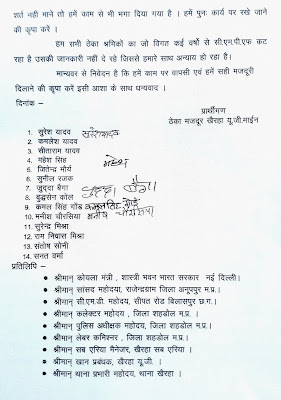 शर्त नहीं माने तो हमें काम से भी भगा दिया गया है । हमें पुनः कार्य पर रखे जाने
की कृपा करें ।
हम रानी ठेका श्रमिकों का जो विगत कई वर्षो से सी.एम.पी.एफ कट
रहा है उसकी जानकारी नहीं दे रहे जिससे हमारे साथ अन्याय हो रहा है।
मान्यवर से निवेदन है कि हमें काम पर वापसी एवं हमें सही मजदूरी
दिलाने की कृपा करें इसी आशा के साथ धन्यवाद ।
दिनांक –
प्रार्थीगण
ठेका मजदूर खैरहा यू.जी.माईन
1. सुरेश यादव
2. कमलेश यादव
3. सीताराम यादव
4. महेश सिंह महेश
5. जितेन्द्र मौर्य
6. सुनील रजक
7. जुददा बैगा
8. बुद्धसेन कोल
9. कमल सिंह गोंड कमल सिंह गोंड
10. मनीश चौरसिया मनीष चौरसिया
11. सुरेन्द्र मिश्रा
12. राम निवास मिश्रा
13. संतोष सोनी
14. सनत वर्मा
प्रतिलिपि –
• श्रीमान् कोयला मंत्री , शास्त्री भवन भारत सरकार नई दिल्ली।
• श्रीमान् सांसद महोदया, राजेन्द्रग्राम जिला अनूपपुर म.प्र.।
• श्रीमान् सी.एम.डी. महोदय, सीपत रोड बिलासपुर छ.ग.।
• श्रीमान् कलेक्टर महोदय , जिला शहडोल म.प्र. ।
• श्रीमान् पुलिस अधीक्षक महोदय, जिला शहडोल म.प्र.।
• श्रीमान् लेबर कमिश्नर , जिला शहडोल म.प्र.।
• श्रीमान् सब एरिया मैनेजर, खैरहा सब एरिया ।
• श्रीमान् खान प्रबंधक, खैरहा यू.जी. ।
• श्रीमान् थाना प्रभारी महोदय, थाना खैरहा ।